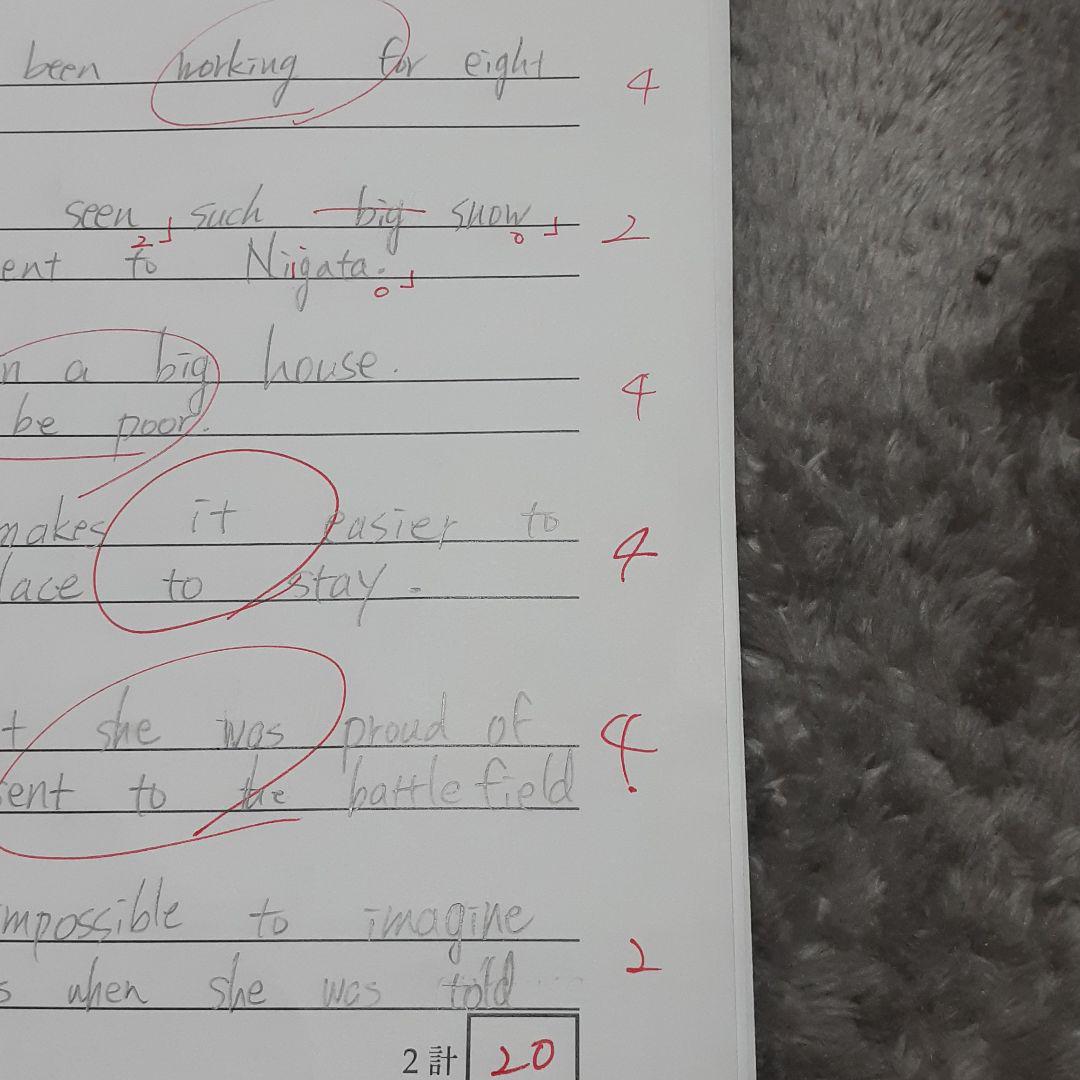 been working for eight
4
seen such big snow
2 0
2
ent to Niigata.
0
n a big house.
4
be poor.
makes it easier to
4
lace to stay.
t she was proud of
4
sent to the battlefield
impossible to imagine
2
s when she was told
2計 20